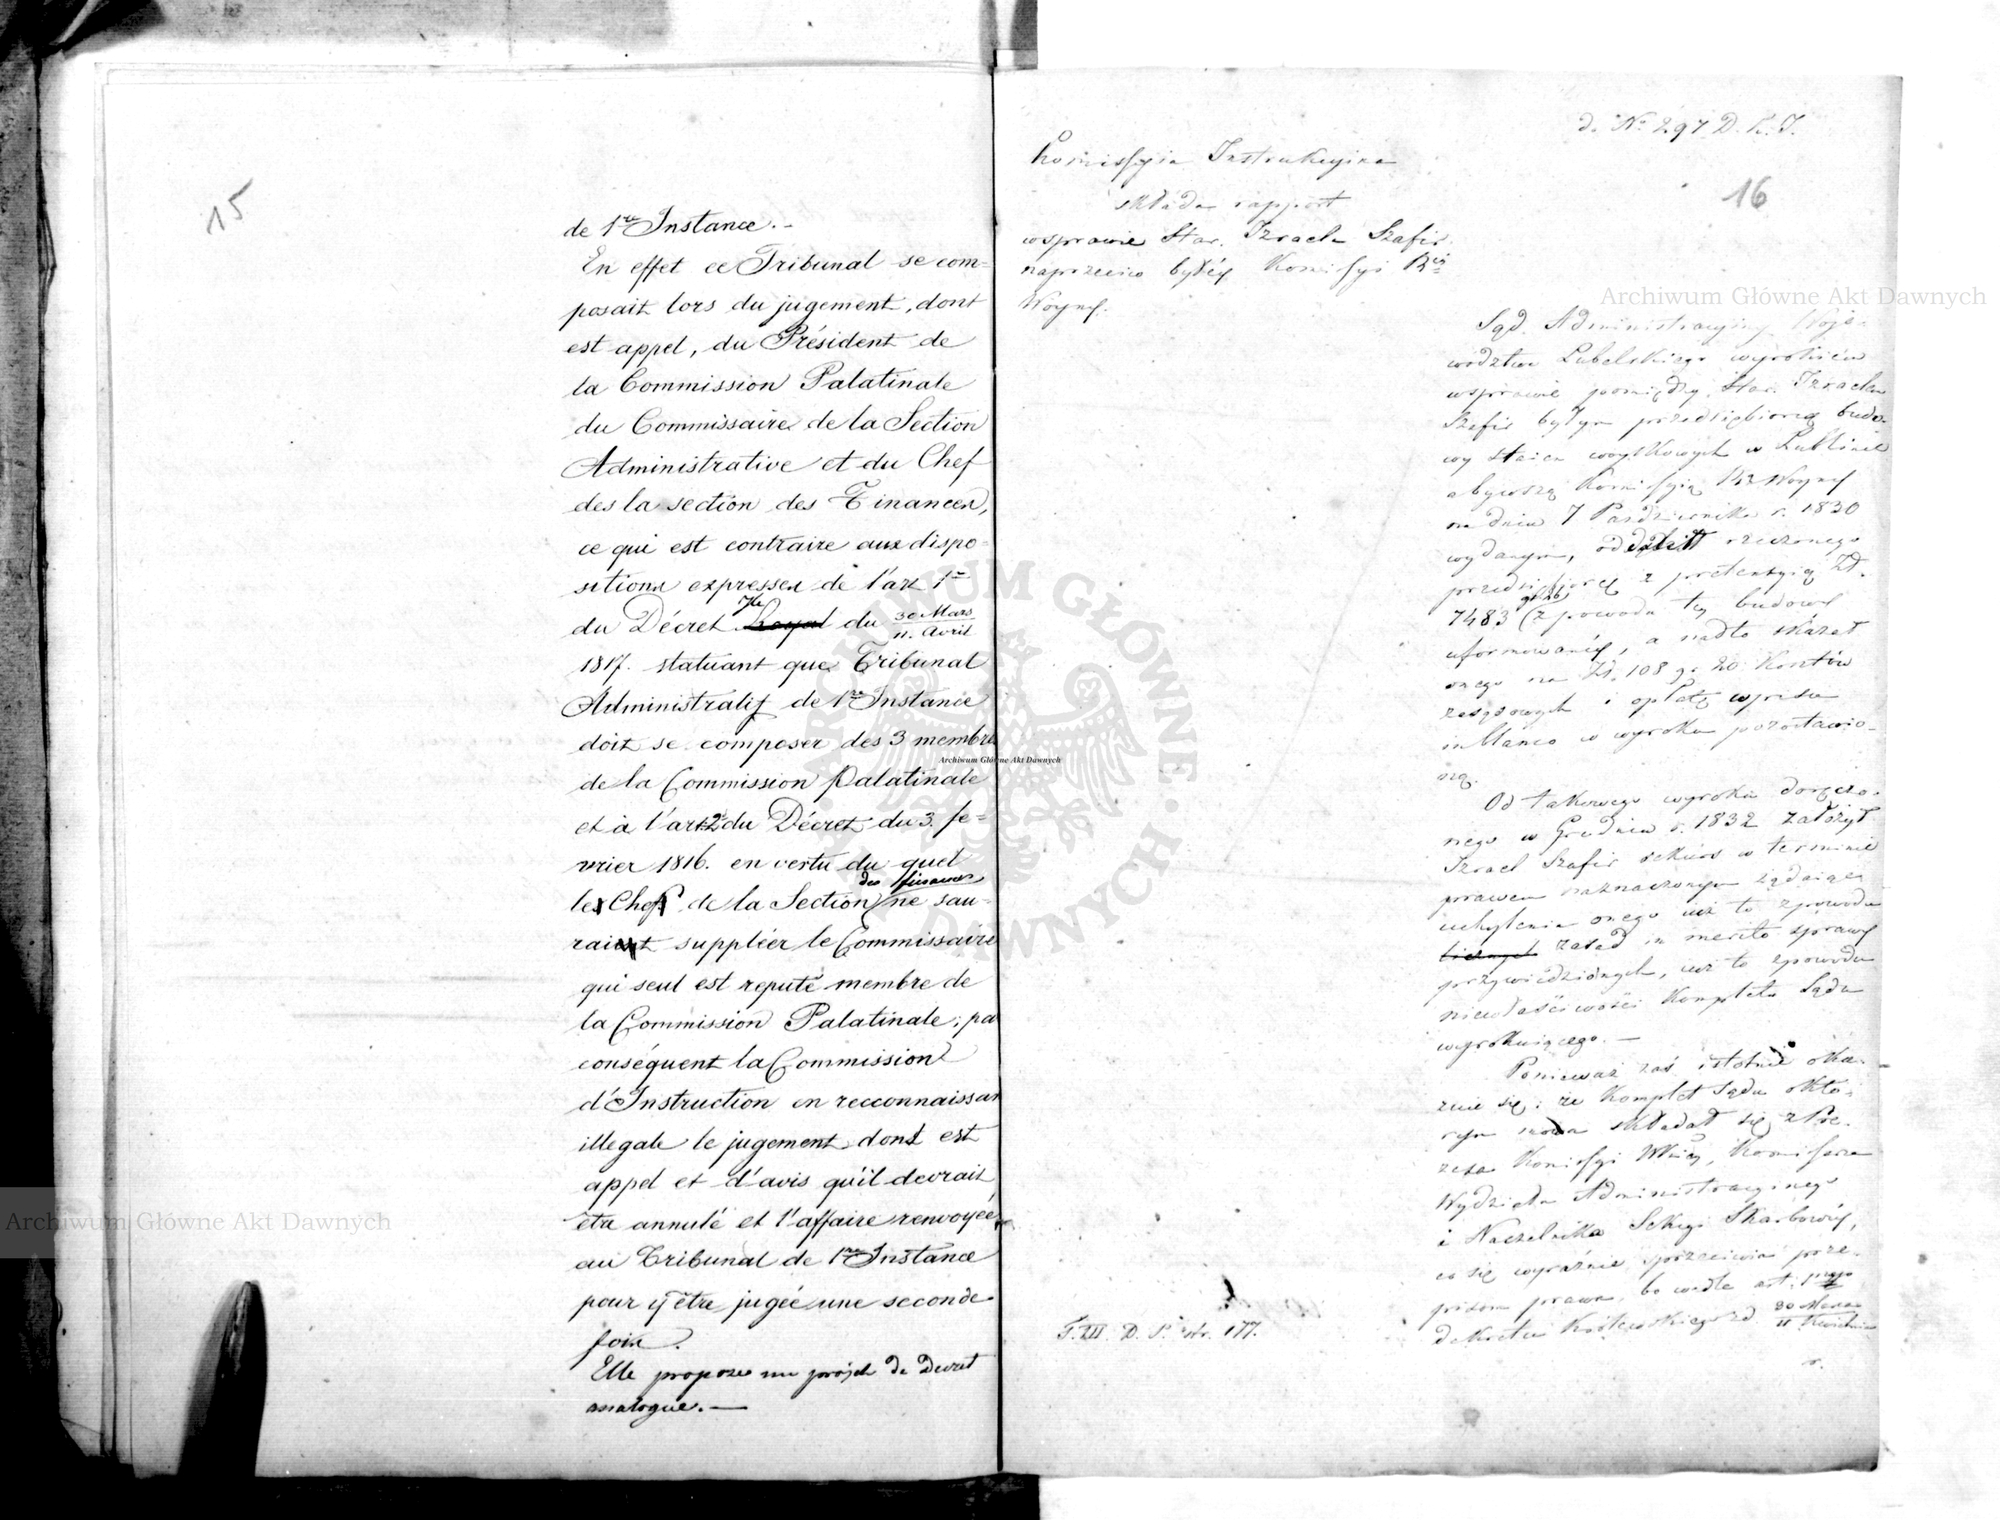 15
de 1re Instance.-
En effet ce Tribunal se com=
posait lors du jugement, dont
est appel, du Président de
la Commission Palatinale
du Commissaire de la Section
Administrative et du Chef
des la section des Finances,
ce qui est contraire aux dispo
sitions expresses de l'art 1er
du Décret Royal du 30 Mars
11. Avril
1817. statuant que Tribunal
Administratif de 1re Instance
doit se composer des 3 membres
de la Commission Palatinale
et à l'art 2 du Décret du 3. fe=
vrier 1816. en vertu du quel
des finances
le Chef de la Section ne sau-
rait suppléer le Commissaire
qui seul est reputé membre de
la Commission Palatinale; par
conséquent la Commission
d'Instruction en reconnaissant
illegale le jugement dont est
appel et d'avis qu'il devrait
être annulé et l'affaire renvoyée
au Tribunal de 1re Instance
pour y être jugée une seconde
fois.
Elle propose un projet de Decret
analogue.—
d. No 297 D. K. I.
16
Komissyia Instrukcyina
składa rapport
wsprawie Star. Izraela Szafir
naprzeciw byłéy Komissyi Rzi
Woyny.
Sąd Administracyiny Woje-
wództwa Lubelskiego wyrokiem
wsprawie pomiędzy Star. Izraelem
Szafir byłym przedsiębiorcą budo-
wy stáien woyskowych w Lublinie
a bywszą Komissyią Rz Woyny
na dniu 7 Października r. 1830
wydanym, oddalił rzeczonego
przedsiębiorcę z pretensyią Zł.
7483 (z powodu téy budowy
uformowanéy, a nadto skazał
onego na Zł. 108 gr 20 Kosztów
zasądowych i opłatę wpisu
in blanco w wyroku pozostawio-
ną.
Od takowego wyroku doręczo-
nego w Grudniu r. 1832 założył
Izrael Szafir rekurs w terminie
prawem naznaczonym żądaiąc
uchylenia onego już to zpowodu
zasad in merito sprawy
przywiedzionych, już to zpowodu
niewłaściwości Kompletu Sądu
wyrokuiącego.—
Ponieważ zaś istotnie oka-
zuie się; że Komplet Sądu o któ-
rym mowa składał się z Pre-
zesa Komissyi Wkiéy, Komissarza
Wydziału Administracyinego
i Naczelnika Sekcyi Skarbowéy,
co się wyraźnie sprzeciwia prze-
pisom prawa, bo wedle art. 1wszo
dekretu Królewskiego zd 30 Marca
11 Kwietnia
r.
T. III. D. P. str. 177.
Archiwum Główne Akt Dawnych
Archiwum Główne Akt Dawnych
Archiwum Główne Akt Dawnych
ARCHIWUM GŁÓWNE AKT DAWNYCH